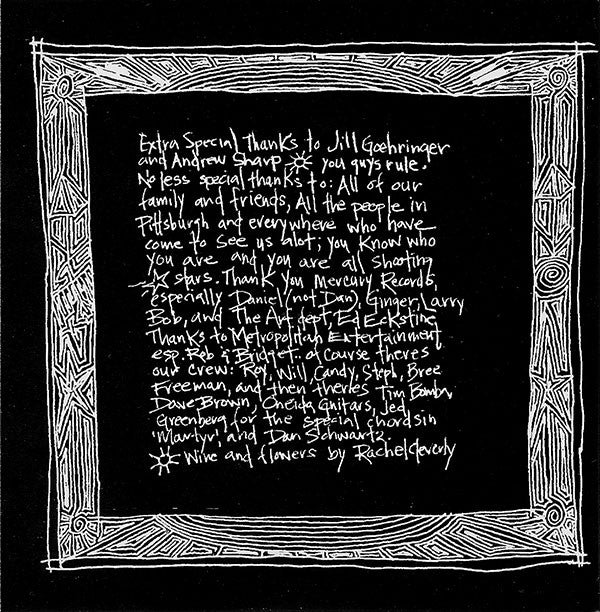 Extra Special Thanks to Jill Goehringer
and Andrew Sharp ☼ you guys rule.
No less special thanks to: All of our
family and friends, All the people in
Pittsburgh and everywhere who have
come to see us alot; you know who
you are and you are all shooting
☆ stars. Thank you Mercury Records,
especially Daniel (not Dan), Ginger, Larry
Bob, and The Art dept, Ed Eckstine,
Thanks to Metropolitan Entertainment,
esp. Rob & Bridget.. of course theres
our crew: Roy, Will, Candy, Steph, Bree
Freeman, and then theres Tim Bomba,
Dave Brown, Oneida Guitars, Jed
Greenberg for the special chords in
'Martyr', and Dan Schwartz.
☼ Wine and flowers by Rachel Cleverly